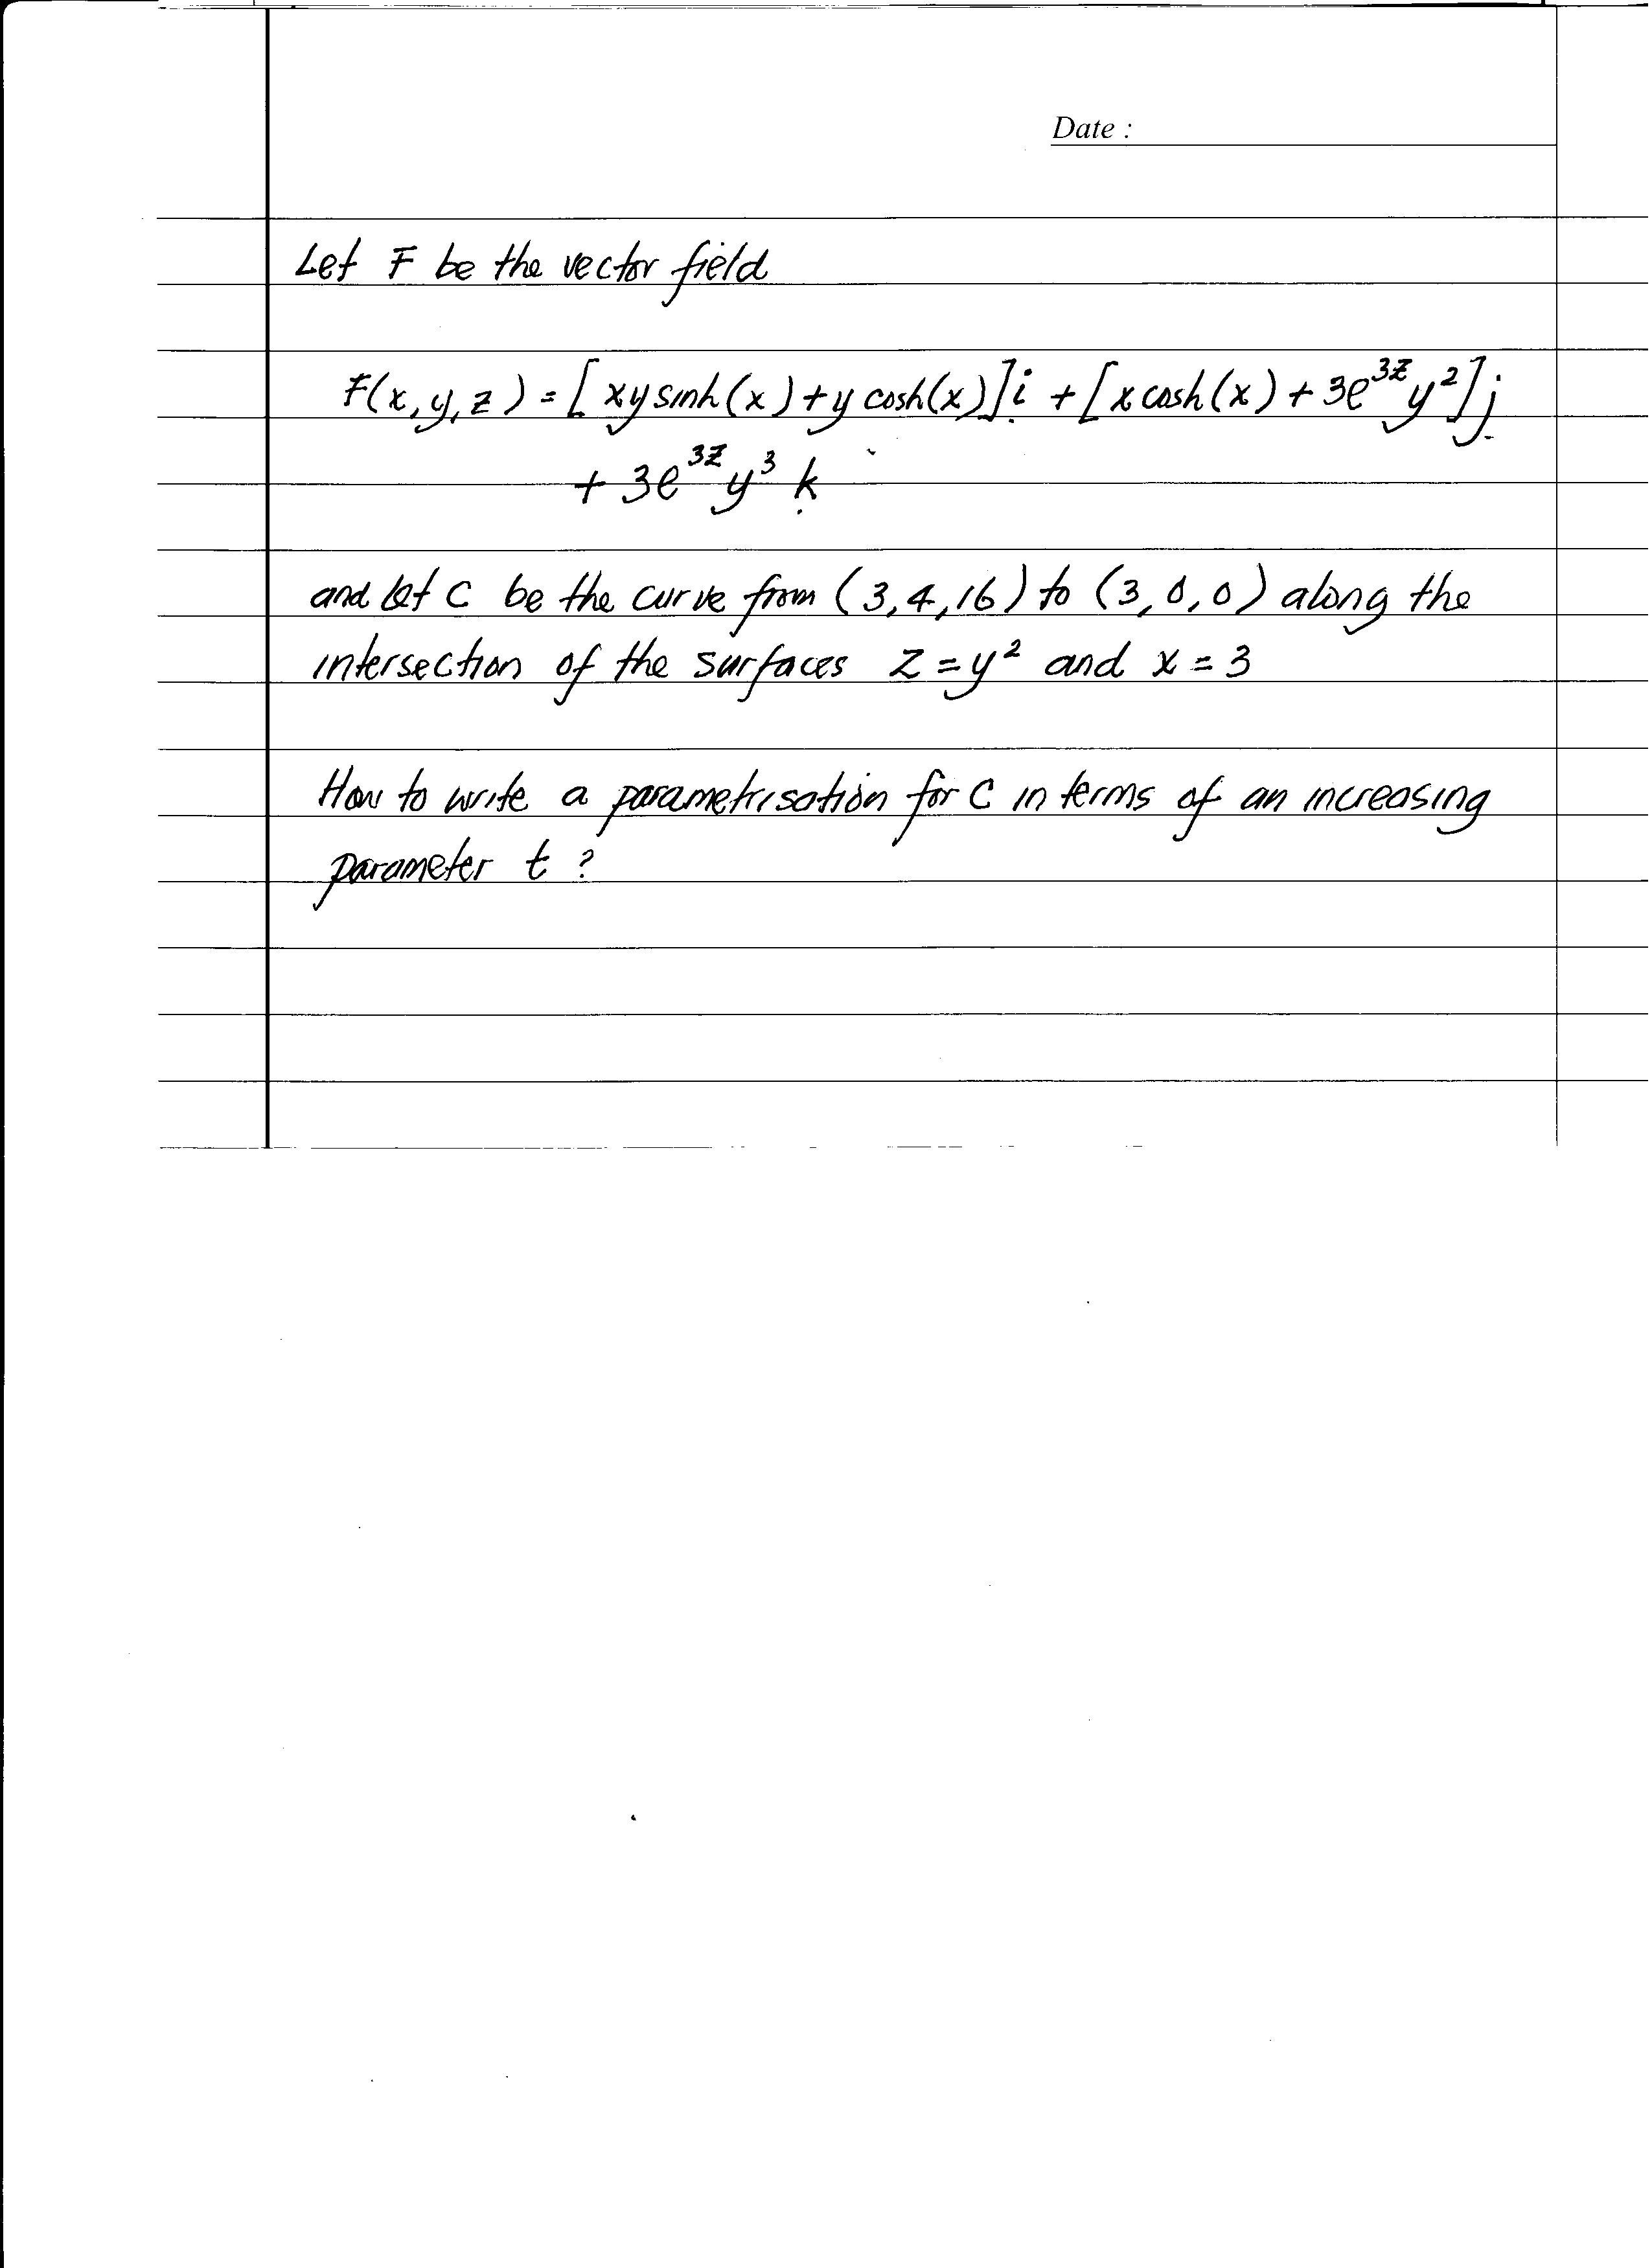 Date :
Let F be the vector field
F(x, y, z) = [xy sinh(x) + y cosh(x)] i + [x cosh(x) + 3e^{3z} y^2] j
+ 3e^{3z} y^3 k
and let C be the curve from (3, 4, 16) to (3, 0, 0) along the
intersection of the surfaces z = y^2 and x = 3
How to write a parametrisation for C in terms of an increasing
parameter t ?